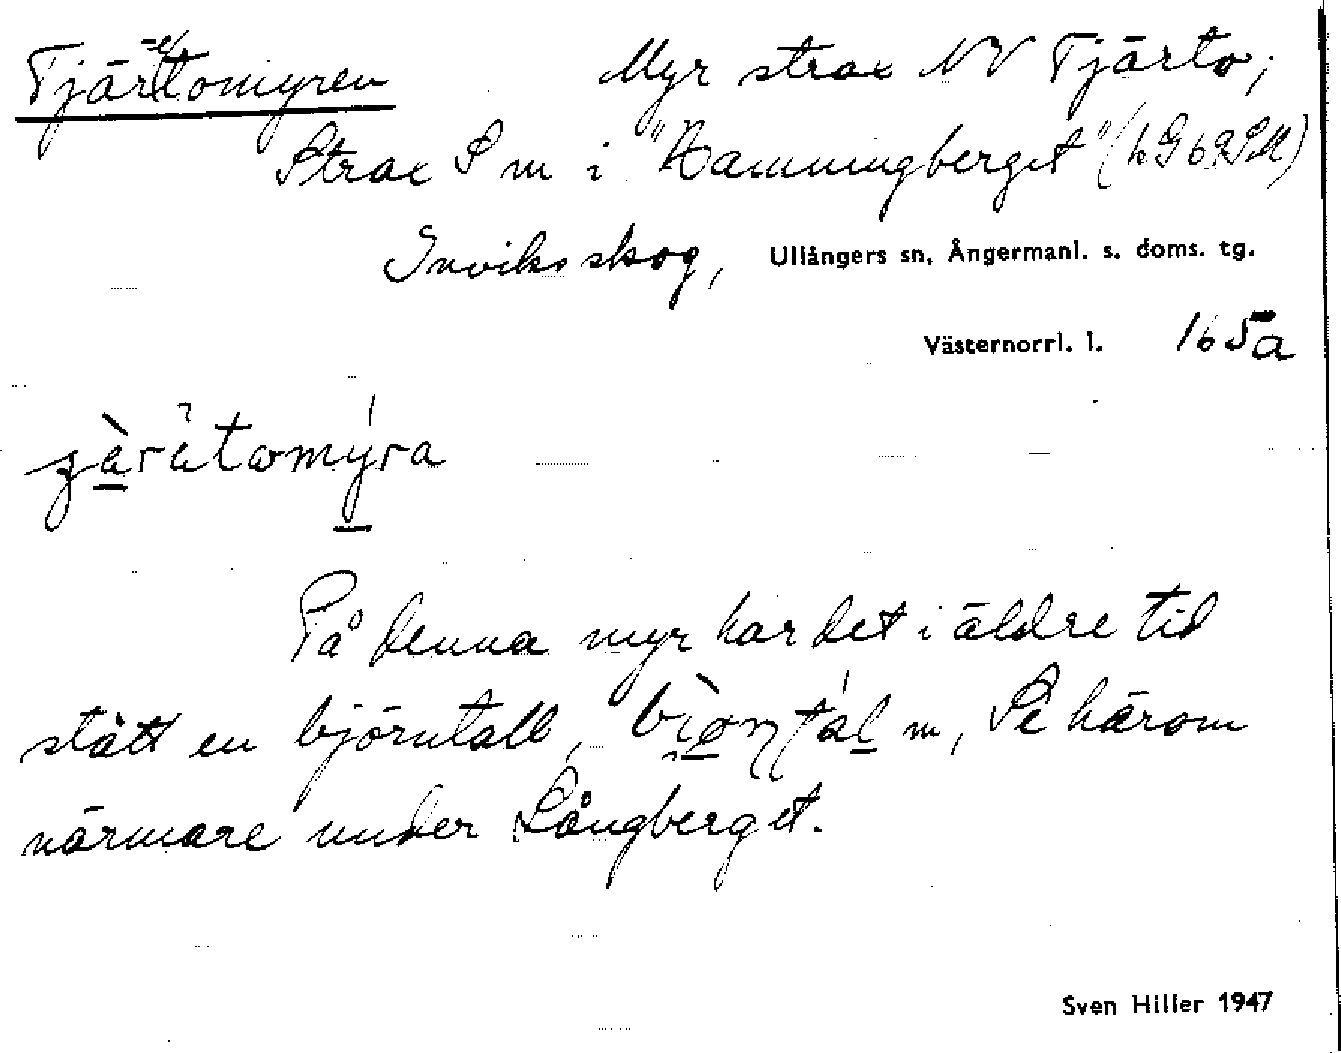 Tjär-e/tomyren Myr strax NV Tjärto,
Strax S m i "Hamningberget" (
Inviksskog, Ullångers sn, Ångermanl. s. doms. tg.
Västernorrl. l. 165a
På denna myr har det i äldre tid
stått en björntall, m, Se härom
närmare under Långberget.
Sven Hiller 1947